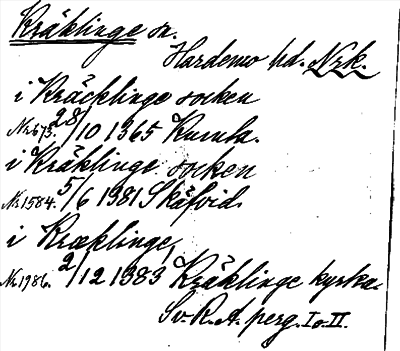 Kräklinge sn.
Hardemo hd. Nrk.
i Kräcklinge socken
Nr 675. 28/10 1365 Kumla.
i Kräklinge socken
Nr 1584. 5/6 1381 Skäfvid.
i Kræklinge,
Nr 1986. 2/12 1383 Kräklinge kyrka.
Sv. R. A. perg. I o. II.